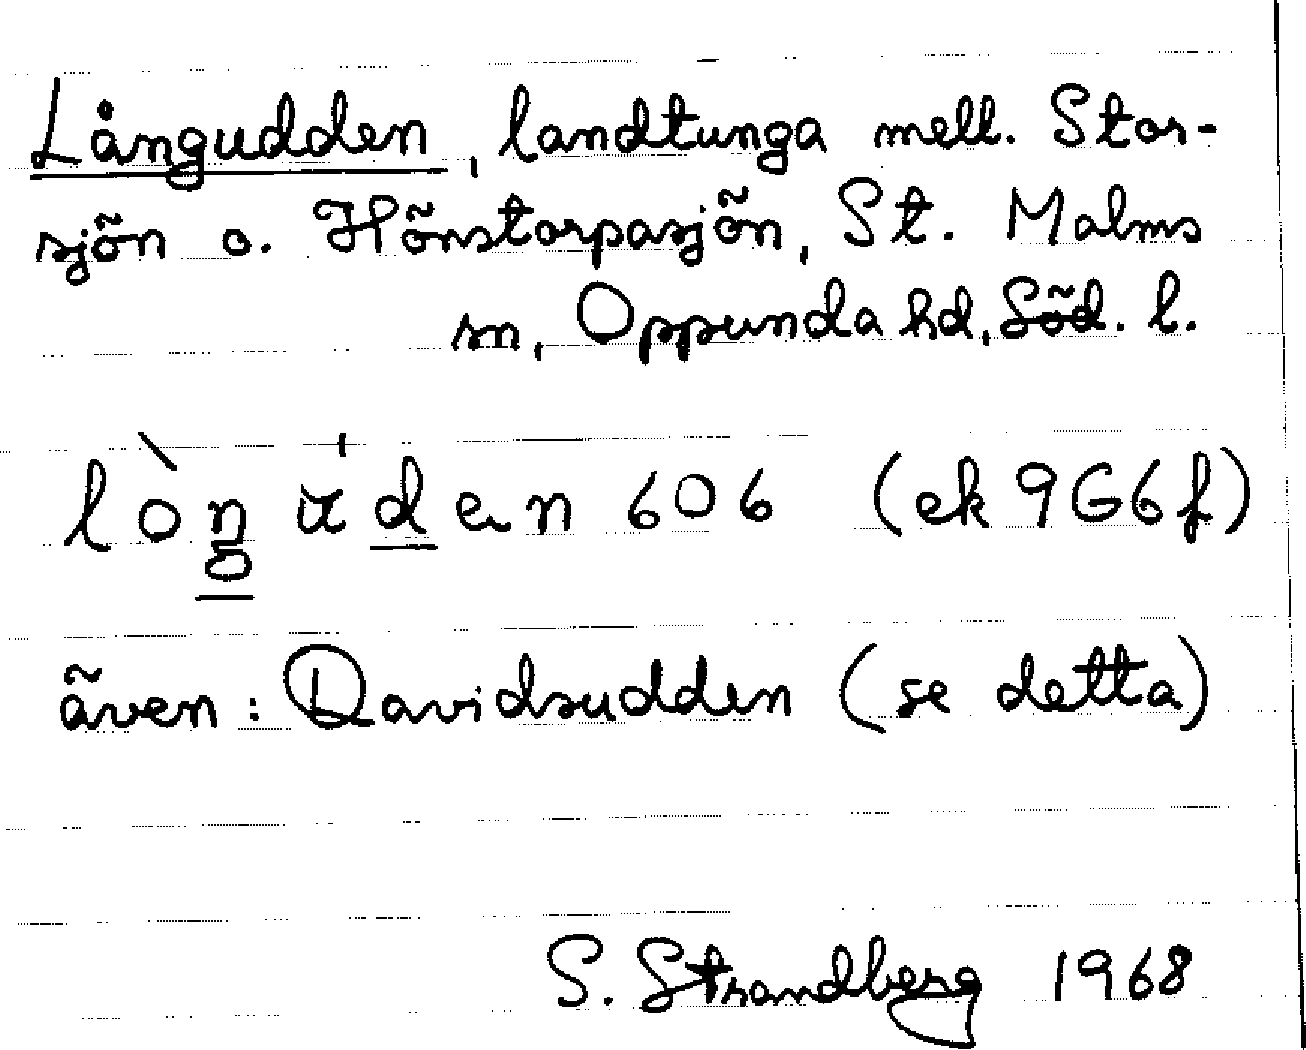 Långudden, landtunga mell. Stor-
sjön o. Hönstorpasjön, St. Malms
sn, Oppunda hd, Söd. l.
lòŋ u̇den 606 (ek 9G6f)
även: Davidsudden (se detta)
S. Strandberg 1968